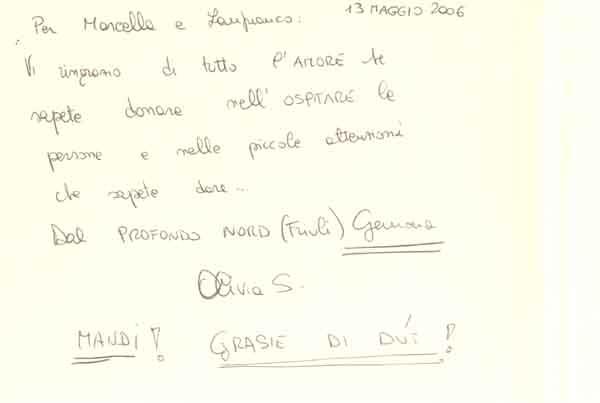 Per Marcella e Lanfranco: 13 MAGGIO 2006
Vi ringrazio di tutto l'AMORE che
sapete donare nell'OSPITARE le
persone e nelle piccole attenzioni
che sapete dare...
Dal PROFONDO NORD (Friuli) Gemona
Olivia S.
MANDI! GRASIE DI DUT!